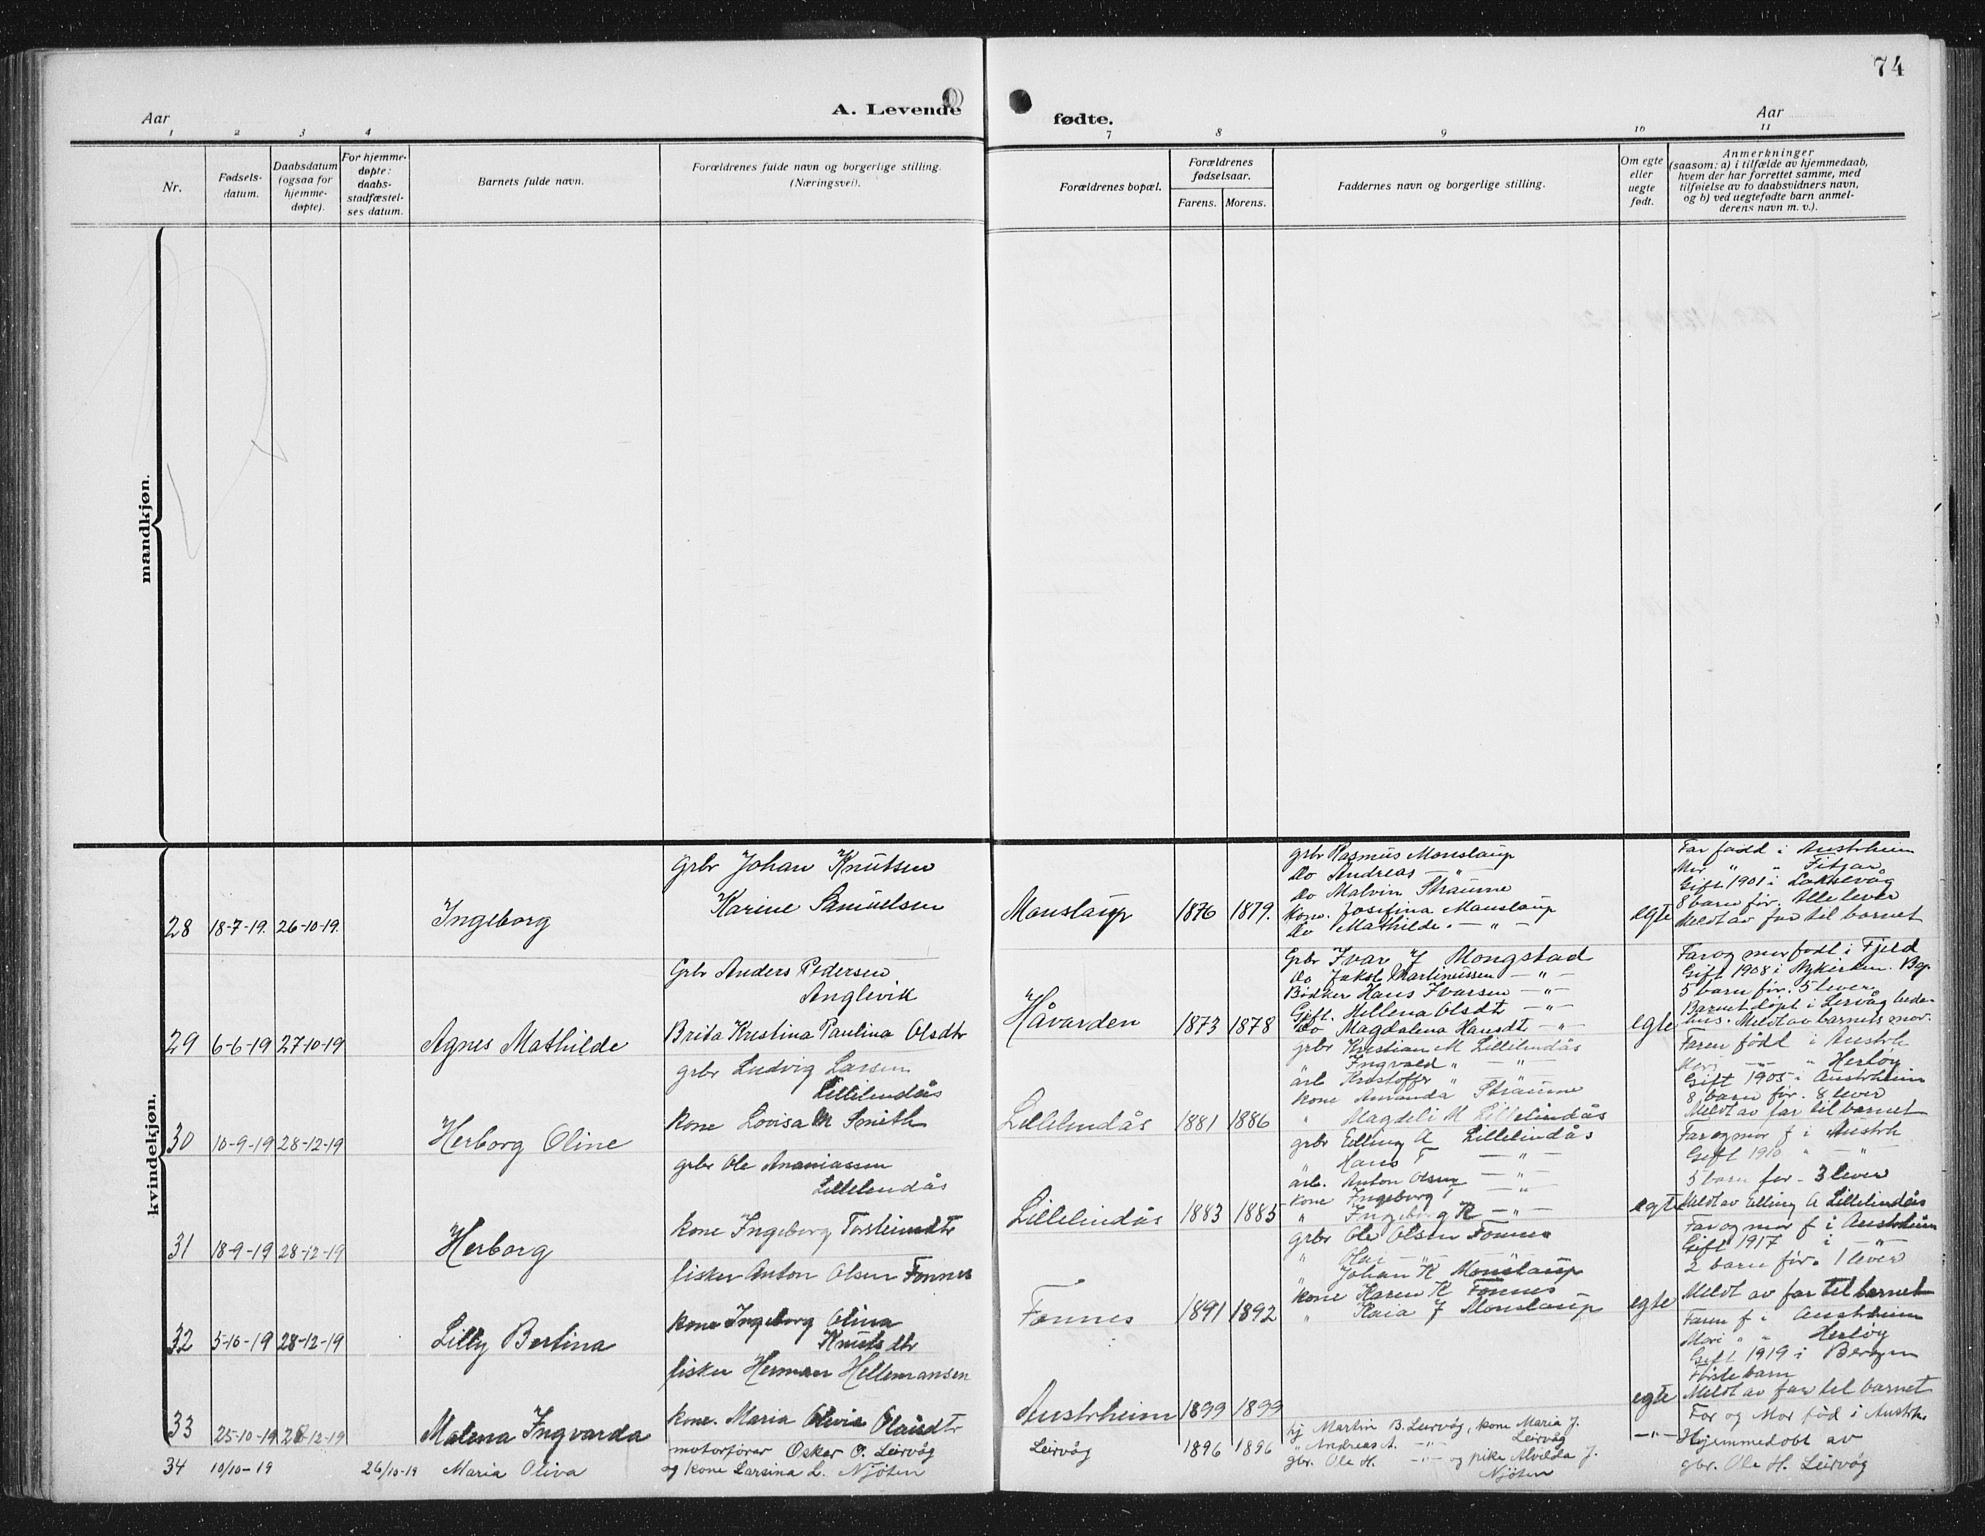 74
Aar
A. Levende
fødte.
Aar
1 2 3 4 7 8 9 10 11
Nr.
Fødsels-
datum.
Daabsdatum
(ogsaa for
hjemme-
døpte).
For hjemme-
døpte:
daabs-
stadfæstel-
ses datum.
Barnets fulde navn.
Forældrenes fulde navn og borgerlige stilling.
(Næringsvei).
Forældrenes bopæl.
Forældrenes
fødselsaar.
Farens. Morens.
Faddernes navn og borgerlige stilling.
Om egte
eller
uegte
født.
Anmerkninger
(saasom: a) i tilfælde av hjemmedaab,
hvem der har forrettet samme, med
tilføielse av to daabsvidners navn,
og b) ved uegtefødte barn anmel-
derens navn m. v.).
mandkjøn.
kvindekjøn.
28 18-7-19. 26-10-19. Ingeborg
Grbr Johan Knutsen
Karine Samuelsen
Monslaup 1876 1879.
grbr Rasmus Monslaup
Do Andreas — " —
Do Malvin Straume
Kone. Josefina Monslaup
Do Mathilde. — " —
egte
Far född i Austrheim
Mor " " Fitjar
Gift 1901 i Laksevåg
8 barn för. Alle lever
Meldt av far til barnet
29 6-6-19 27-10-19 Agnes Mathilde
Grbr Anders Pedersen
Anglevik
Brita Kristina Paulina Olsdtr
Håvarden 1873 1878
Grbr Ivar J Mongstad
Do Jakob Martinussen — " —
Bödker Hans Ivarsen — " —
Gift. Hellena Olsdt — " —
Do Magdalena Hansdt — " —
egte
Far og mor född i Fjeld
Gift 1908 i Nykirken. Bg.
5 barn för. 5 lever
Barnet döpt i Lervåg bede-
hus. Meldt av barnets mor.
30 10-9-19 28-12-19 Herborg Oline
grbr Ludvig Larsen
Lillelindås
Kone Lovisa M Smith
Lillelindås 1881 1886
grbr Kristian M Lillelindås
" Ingvald " "
arb Kristoffer " "
kone Amanda Straume
" Magdeli M Lillelindås
Faren född i Austrh
Mor — " — " Herlöy
Gift 1905 i Austrheim
8 barn för. 8 lever
Meldt av far til barnet
31 18-9-19 28-12-19 Herborg
grbr Ole Ananiassen
Lillelindås
kone Ingeborg Torsteinsdtr
Lillelindås 1883 1885
grbr Elling A Lillelindås
" Hans T — " —
arb. Anton Olsen — " —
kone Ingeborg T — " —
" Ingeborg K — " —
egte
Far og mor f i Austrh
Gift 1910 " — " —
5 barn för 3 lever
Meldt av Elling A Lillelindås
32 5-10-19 28-12-19 Lilly Bertina
fisker Anton Olsen Fonnes
kone Ingeborg Olina
Knutsdtr
Fonnes 1891 1892
grbr Ole Olsen Fonnes
" Olai — " — — " —
" Johan K Monslaup
kone Karen K Fonnes
" Kaia J Monslaup
egte
Far og mor f i Austrheim
Gift 1917 i — " —
2 barn för. 1 lever
Meldt av far til barnet
33 25-10-19 28-12-19 Malena Ingvarda
fisker Herman Hellemansen
kone. Maria Olivia Olaisdtr
Austrheim 1899 1899
egte
Faren f i Austrheim
Mor " " Herlöy
Gift 1919 i Bergen
Første barn
Meldt av far til barnet
34 10/10-19 26/10-19 Maria Oliva
motorfører Oskar O. Leirvåg
og kone Larsina L. Njøten
Leirvåg 1896 1896
hj Martin B. Leirvåg, kone Maria J.
Leirvåg
" Andreas A. — " —
gbr. Ole H. — " — og pike Alvilda J.
Njöten
— " —
Far og Mor föd i Austrh
Hjemmedøbt av
gbr. Ole H. Leirvåg